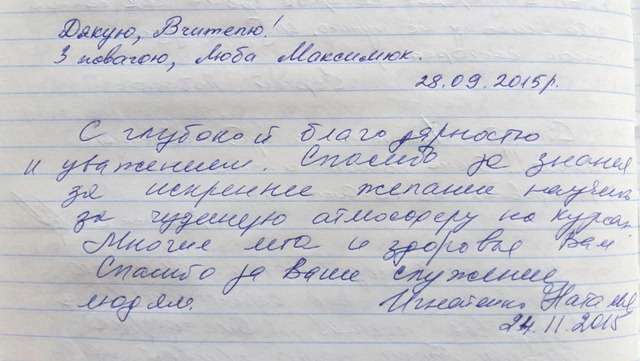 Дякую, Вчителю!
З повагою, Люба Максимюк.
28.09.2015р.
С глубокой благодарностью
и уважением. Спасибо за знания
за искреннее желание научить
за чудесную атмосферу на курсах.
Многие лета и здоровья Вам
Спасибо за Ваше служение
людям. Игнатенко Наталия
24.11.2015